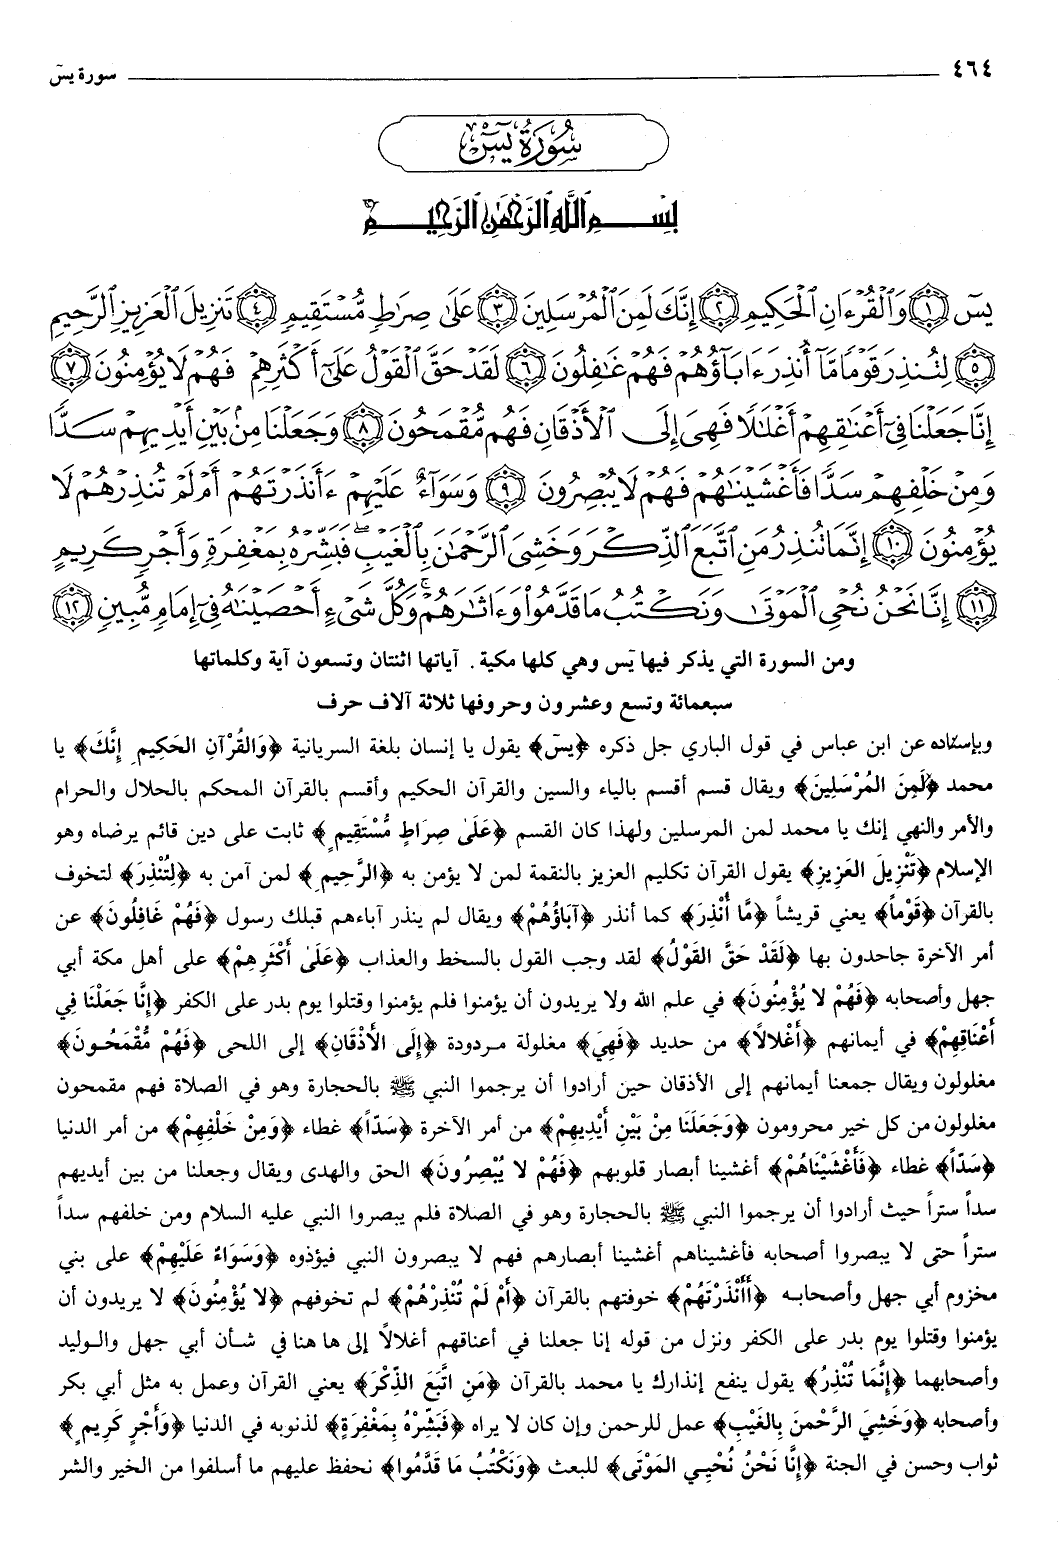 ٤٦٤ سورة يسٓ
سُورَةُ يسٓ
بِسْمِ ٱللَّهِ ٱلرَّحْمَٰنِ ٱلرَّحِيمِ
يسٓ ﴿١﴾ وَٱلْقُرْءَانِ ٱلْحَكِيمِ ﴿٢﴾ إِنَّكَ لَمِنَ ٱلْمُرْسَلِينَ ﴿٣﴾ عَلَىٰ صِرَٰطٍ مُّسْتَقِيمٍ ﴿٤﴾ تَنزِيلَ ٱلْعَزِيزِ ٱلرَّحِيمِ
﴿٥﴾ لِتُنذِرَ قَوْمًا مَّآ أُنذِرَ ءَابَآؤُهُمْ فَهُمْ غَٰفِلُونَ ﴿٦﴾ لَقَدْ حَقَّ ٱلْقَوْلُ عَلَىٰٓ أَكْثَرِهِمْ فَهُمْ لَا يُؤْمِنُونَ ﴿٧﴾
إِنَّا جَعَلْنَا فِىٓ أَعْنَٰقِهِمْ أَغْلَٰلًا فَهِىَ إِلَى ٱلْأَذْقَانِ فَهُم مُّقْمَحُونَ ﴿٨﴾ وَجَعَلْنَا مِنۢ بَيْنِ أَيْدِيهِمْ سَدًّا
وَمِنْ خَلْفِهِمْ سَدًّا فَأَغْشَيْنَٰهُمْ فَهُمْ لَا يُبْصِرُونَ ﴿٩﴾ وَسَوَآءٌ عَلَيْهِمْ ءَأَنذَرْتَهُمْ أَمْ لَمْ تُنذِرْهُمْ لَا
يُؤْمِنُونَ ﴿١٠﴾ إِنَّمَا تُنذِرُ مَنِ ٱتَّبَعَ ٱلذِّكْرَ وَخَشِىَ ٱلرَّحْمَٰنَ بِٱلْغَيْبِ ۖ فَبَشِّرْهُ بِمَغْفِرَةٍ وَأَجْرٍ كَرِيمٍ
﴿١١﴾ إِنَّا نَحْنُ نُحْىِ ٱلْمَوْتَىٰ وَنَكْتُبُ مَا قَدَّمُوا۟ وَءَاثَٰرَهُمْ ۚ وَكُلَّ شَىْءٍ أَحْصَيْنَٰهُ فِىٓ إِمَامٍ مُّبِينٍ ﴿١٢﴾
ومن السورة التي يذكر فيها يٓس وهي كلها مكية. آياتها اثنتان وتسعون آية وكلماتها
سبعمائة وتسع وعشرون وحروفها ثلاثة آلاف حرف
وبإسناده عن ابن عباس في قول الباري جل ذكره ﴿يسٓ﴾ يقول يا إنسان بلغة السريانية ﴿وَالقُرْآنِ الحَكِيمِ إِنَّكَ﴾ يا
محمد ﴿لَمِنَ المُرْسَلِينَ﴾ ويقال قسم أقسم بالياء والسين والقرآن الحكيم وأقسم بالقرآن المحكم بالحلال والحرام
والأمر والنهي إنك يا محمد لمن المرسلين ولهذا كان القسم ﴿عَلَىٰ صِرَاطٍ مُّسْتَقِيمٍ﴾ ثابت على دين قائم يرضاه وهو
الإسلام ﴿تَنْزِيلَ العَزِيزِ﴾ يقول القرآن تكليم العزيز بالنقمة لمن لا يؤمن به ﴿الرَّحِيمِ﴾ لمن آمن به ﴿لِتُنْذِرَ﴾ لتخوف
بالقرآن ﴿قَوْماً﴾ يعني قريشاً ﴿مَّا أُنْذِرَ﴾ كما أنذر ﴿آبَاؤُهُمْ﴾ ويقال لم ينذر آباءهم قبلك رسول ﴿فَهُمْ غَافِلُونَ﴾ عن
أمر الآخرة جاحدون بها ﴿لَقَدْ حَقَّ القَوْلُ﴾ لقد وجب القول بالسخط والعذاب ﴿عَلَىٰ أَكْثَرِهِمْ﴾ على أهل مكة أبي
جهل وأصحابه ﴿فَهُمْ لا يُؤْمِنُونَ﴾ في علم الله ولا يريدون أن يؤمنوا فلم يؤمنوا وقتلوا يوم بدر على الكفر ﴿إِنَّا جَعَلْنَا فِي
أَعْنَاقِهِمْ﴾ في أيمانهم ﴿أَغْلالاً﴾ من حديد ﴿فَهِيَ﴾ مغلولة مردودة ﴿إِلَى الأَذْقَانِ﴾ إلى اللحى ﴿فَهُمْ مُّقْمَحُونَ﴾
مغلولون ويقال جمعنا أيمانهم إلى الأذقان حين أرادوا أن يرجموا النبي ﷺ بالحجارة وهو في الصلاة فهم مقمحون
مغلولون من كل خير محرومون ﴿وَجَعَلْنَا مِنْ بَيْنِ أَيْدِيهِمْ﴾ من أمر الآخرة ﴿سَدّاً﴾ غطاء ﴿وَمِنْ خَلْفِهِمْ﴾ من أمر الدنيا
﴿سَدّاً﴾ غطاء ﴿فَأَغْشَيْنَاهُمْ﴾ أغشينا أبصار قلوبهم ﴿فَهُمْ لا يُبْصِرُونَ﴾ الحق والهدى ويقال وجعلنا من بين أيديهم
سداً ستراً حيث أرادوا أن يرجموا النبي ﷺ بالحجارة وهو في الصلاة فلم يبصروا النبي عليه السلام ومن خلفهم سداً
ستراً حتى لا يبصروا أصحابه فأغشيناهم أغشينا أبصارهم فهم لا يبصرون النبي فيؤذوه ﴿وَسَوَاءٌ عَلَيْهِمْ﴾ على بني
مخزوم أبي جهل وأصحابه ﴿أَأَنْذَرْتَهُمْ﴾ خوفتهم بالقرآن ﴿أَمْ لَمْ تُنْذِرْهُمْ﴾ لم تخوفهم ﴿لا يُؤْمِنُونَ﴾ لا يريدون أن
يؤمنوا وقتلوا يوم بدر على الكفر ونزل من قوله إنا جعلنا في أعناقهم أغلالاً إلى ها هنا في شأن أبي جهل والوليد
وأصحابهما ﴿إِنَّمَا تُنْذِرُ﴾ يقول ينفع إنذارك يا محمد بالقرآن ﴿مَنِ اتَّبَعَ الذِّكْرَ﴾ يعني القرآن وعمل به مثل أبي بكر
وأصحابه ﴿وَخَشِيَ الرَّحْمنَ بِالغَيْبِ﴾ عمل للرحمن وإن كان لا يراه ﴿فَبَشِّرْهُ بِمَغْفِرَةٍ﴾ لذنوبه في الدنيا ﴿وَأَجْرٍ كَرِيمٍ﴾
ثواب وحسن في الجنة ﴿إِنَّا نَحْنُ نُحْيِي المَوْتَى﴾ للبعث ﴿وَنَكْتُبُ مَا قَدَّمُوا﴾ نحفظ عليهم ما أسلفوا من الخير والشر